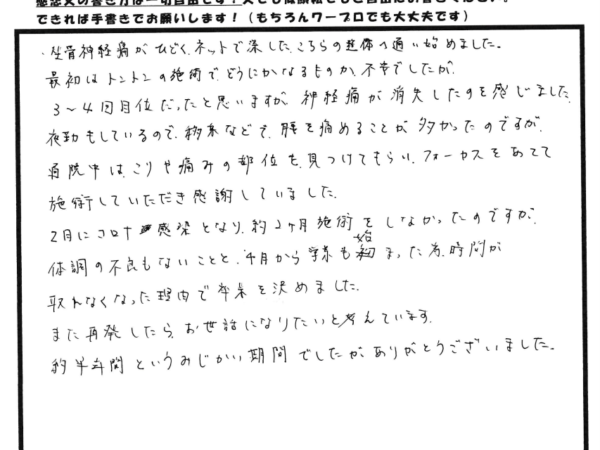 できれば手書きでお願いします！（もちろんワープロでも大丈夫です）
坐骨神経痛がひどく、ネットで探した、こちらの整体へ通い始めました。
最初はトントンの施術で、どうにかなるものか、不幸でしたが、
3～4回目位だったと思いますが、神経痛が消失したのを感じました。
夜勤もしているので、移乗などで、腰を痛めることが多かったのですが、
通院中は、こりや痛みの部位を、見つけてもらい、フォーカスをあてて
施術していただき感謝していました。
2月にコロナ感染となり、約2ヶ月施術をしなかったのですが、
体調の不良もないことと、4月から学業も始まった為、時間が
取れなくなった理由で卒業を決めました。
また再発したら、お世話になりたいと考えています。
約半年間というみじかい期間でしたが、ありがとうございました。